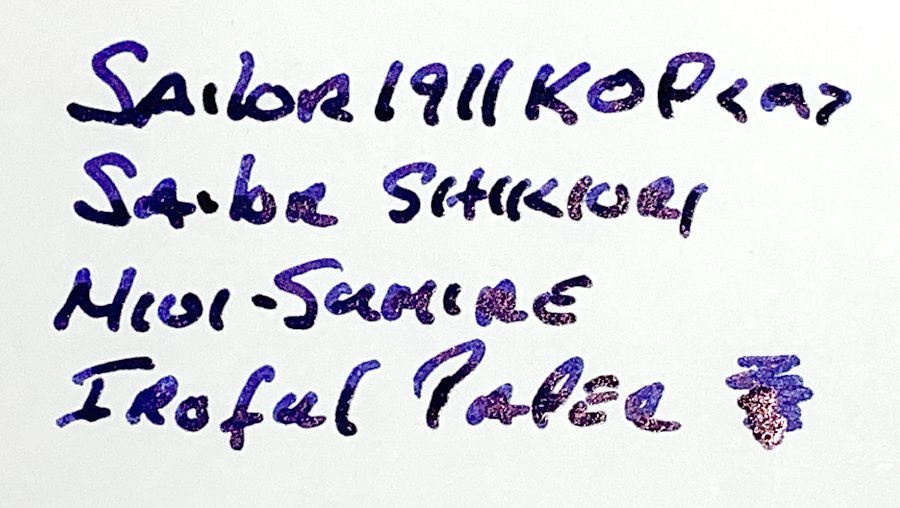 SAiloR 1911 KOP
SAiloR SHIKIORI
NIOI-SUMIRE
IRofuL PAPER